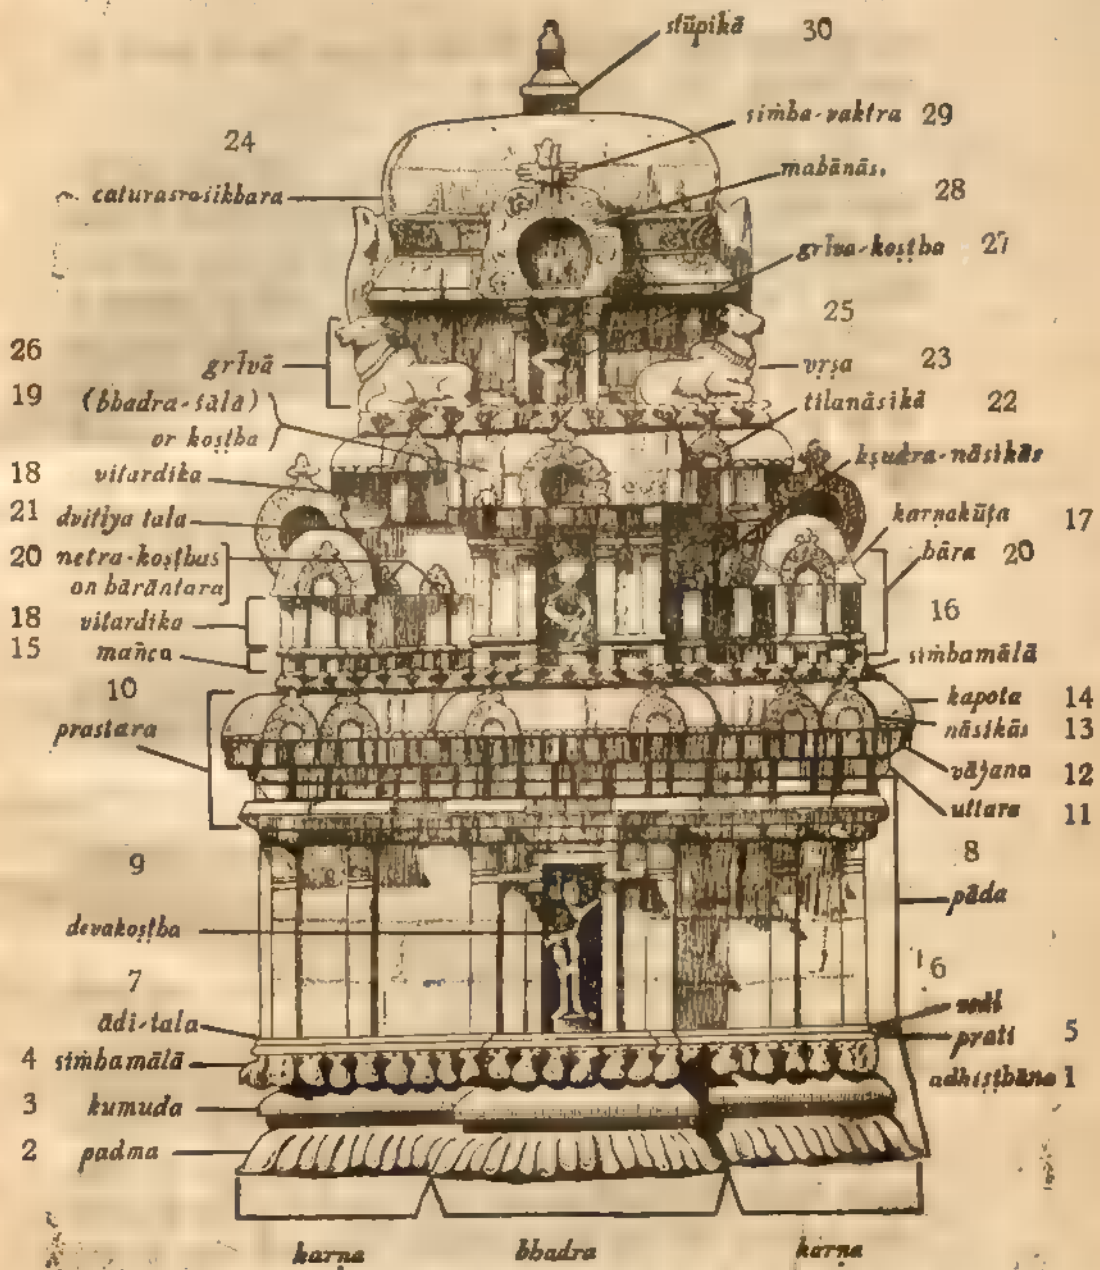 stūpikā 30
simba-vaktra 29
24
mabānās.
caturasra-sikbara
28
grīva-koṣṭba 27
25
26 grīvā
vṛṣa 23
19 (bbadra-sālā)
or koṣṭba
tilanāsikā 22
kṣudra-nāsikās
18 vitardika
21 dvitīya tala
karṇakūṭa 17
20 netra-koṣṭbus
on bārāntara
bāra 20
16
18 vitardika
15 mañca
simbamālā
10
prastara
kapota 14
nāsikās 13
vājana 12
uttara 11
9
8
pāda
devakoṣṭba
7
6
ādi-tala
prati 5
4 simbamālā
adhiṣṭbāna 1
3 kumuda
2 padma
karṇa bhadra karṇa